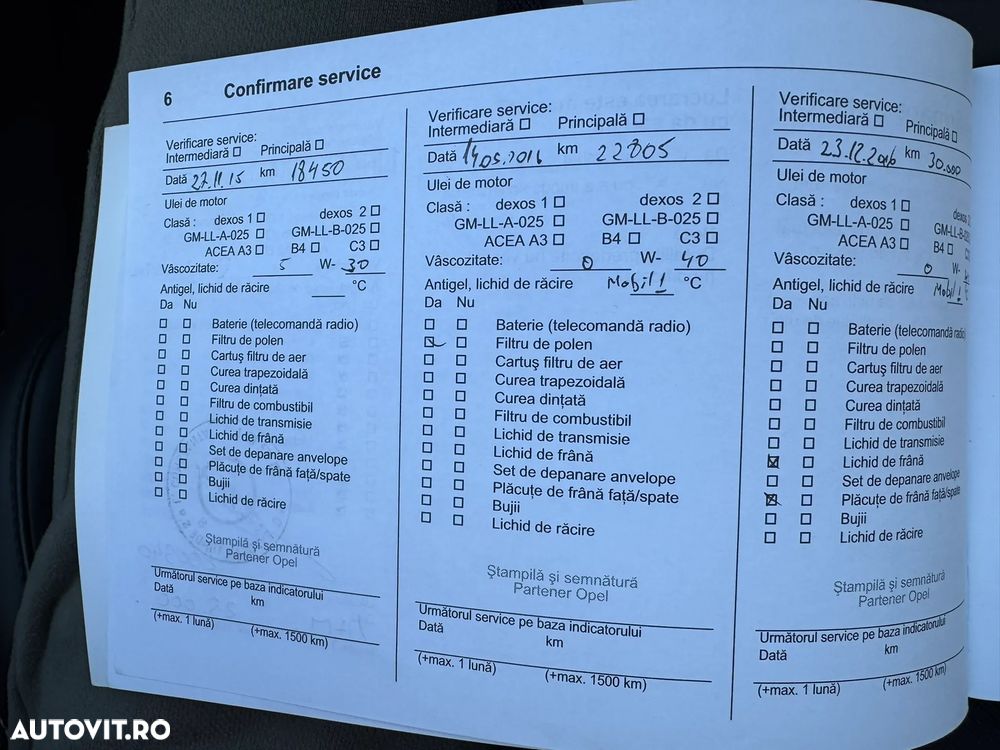 6 Confirmare service
Verificare service:
Intermediară Principală
Dată 27.11.15 km 18450
Ulei de motor
Clasă : dexos 1 dexos 2
GM-LL-A-025 GM-LL-B-025
ACEA A3 B4 C3
Vâscozitate: 5 W- 30
Antigel, lichid de răcire °C
Da Nu
Baterie (telecomandă radio)
Filtru de polen
Cartuş filtru de aer
Curea trapezoidală
Curea dințată
Filtru de combustibil
Lichid de transmisie
Lichid de frână
Set de depanare anvelope
Plăcuțe de frână față/spate
Bujii
Lichid de răcire
Ştampilă şi semnătură
Partener Opel
Următorul service pe baza indicatorului
Dată km
(+max. 1 lună) (+max. 1500 km)
Verificare service:
Intermediară Principală
Dată 14.05.2016 km 22805
Ulei de motor
Clasă : dexos 1 dexos 2
GM-LL-A-025 GM-LL-B-025
ACEA A3 B4 C3
Vâscozitate: 0 W- 40
Antigel, lichid de răcire Mobil 1 °C
Da Nu
Baterie (telecomandă radio)
Filtru de polen
Cartuş filtru de aer
Curea trapezoidală
Curea dințată
Filtru de combustibil
Lichid de transmisie
Lichid de frână
Set de depanare anvelope
Plăcuțe de frână față/spate
Bujii
Lichid de răcire
Ştampilă şi semnătură
Partener Opel
Următorul service pe baza indicatorului
Dată km
(+max. 1 lună) (+max. 1500 km)
Verificare service:
Intermediară Principală
Dată 23.12.2016 km 30.000
Ulei de motor
Clasă : dexos 1 dexos 2
GM-LL-A-025 GM-LL-B-025
ACEA A3 B4
Vâscozitate: 0 W-
Antigel, lichid de răcire Mobil 1 °C
Da Nu
Baterie (telecomandă radio)
Filtru de polen
Cartuş filtru de aer
Curea trapezoidală
Curea dințată
Filtru de combustibil
Lichid de transmisie
Lichid de frână
Set de depanare anvelope
Plăcuțe de frână față/spate
Bujii
Lichid de răcire
Ştampilă şi semnătură
Partener Opel
Următorul service pe baza indicatorului
Dată km
(+max. 1 lună) (+max. 1500 km)
AUTOVIT.RO